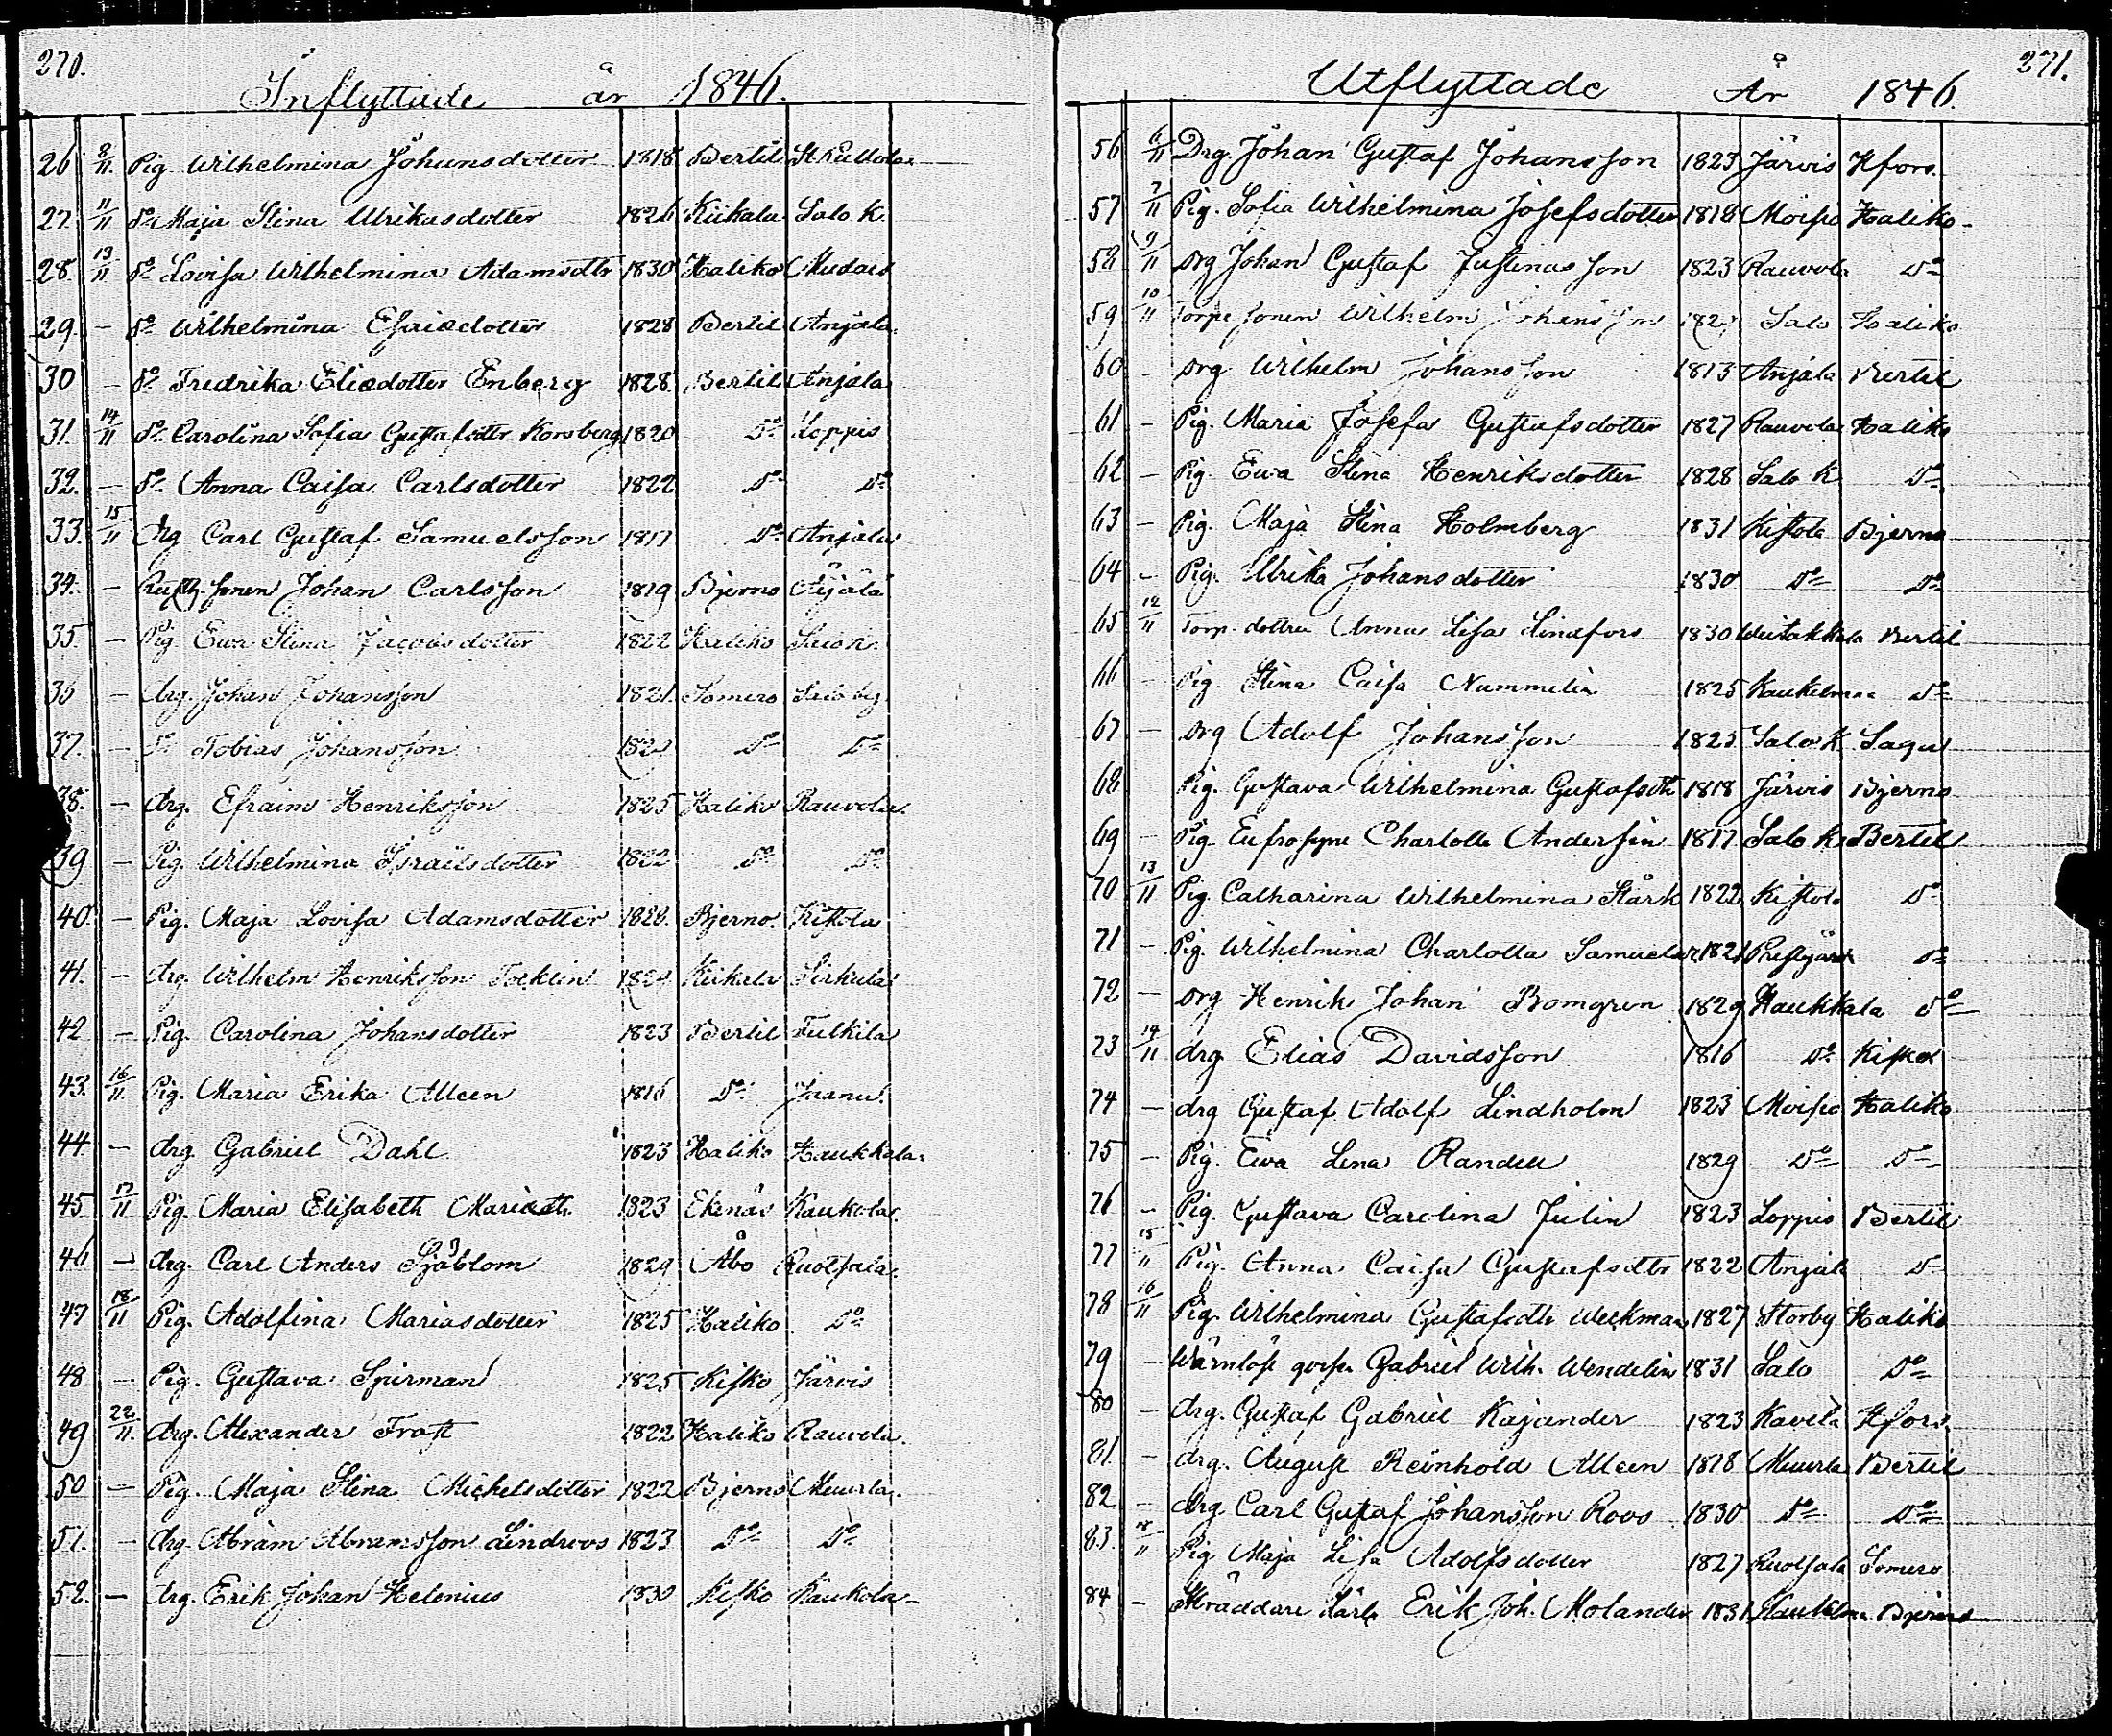 270.
Inflyttade år 1846.
26 8/11. Pig Wilhelmina Johansdotter 1818 Bertil
27. 11/11 Do Maja Stina Ulrikasdotter 1826 Kiikala Salo K.
28. 13/11 Do Lovisa Wilhelmina Adamsdtr 1830 Haliko
29. – Do Wilhelmina Esaiedotter 1828 Bertil Anjala.
30 – Do Fredrika Eliedotter Enberg 1828 Bertil Anjala
31. 14/11 Do Carolina Sofia Gustafsdtr Korsberg 1820 Do Loppis
32. – Do Anna Caisa Carlsdotter 1822 Do Do
33. 15/11 Drg Carl Gustaf Samuelsson 1817 Do Anjala
34. – Rusth. sonen Johan Carlsson 1819 Bjerno Äijälä
35. – Pig Ewa Stina Jacobsdotter 1822 Haliko Salo K.
36 – drg. Johan Johansson 1821. Somero Salo by.
37. – Do Tobias Johansson Do Do
38. – drg. Efraim Henriksson 1825 Haliko Rauvola.
39 – Pig Wilhelmina Israelsdotter 1822 Do Do
40. – Pig. Maja Lovisa Adamsdotter 1828. Bjerno. Kistola
41. – drg. Wilhelm Henriksson Kiikala
42 – Pig. Carolina Johansdotter 1823 Bertil
43. 16/11 Pig. Maria Erika Alleen 1816 Do
44. – drg Gabriel Dahl 1823 Haliko Haukkala.
45 17/11 Pig. Maria Elisabeth Mariædtr. 1823 Ekenäs Kaukola.
46 – drg. Carl Anders Sjöblom 1829 Åbo Ruotsala.
47 18/11 Pig. Adolfina Mariasdotter 1825 Haliko Do
48 – Pig. Gustava Spirman 1825 Kisko Järvis
49 22/11. drg. Alexander Frost 1822 Haliko Rauvola.
50 – Pig. Maja Stina Michelsdotter 1822 Bjerno Muurla.
51. – drg. Abram Abramsson Lindroos 1823 Do Do
52. – drg. Erik Johan Helenius 1830 Kisko Kaukola
271.
Utflyttade År 1846.
56 6/11 Drg. Johan Gustaf Johansson 1823 Järvis Hfors.
57 7/11 Pig. Sofia Wilhelmina Josefsdotter 1818 Moisio Haliko
58 9/11 Drg Johan Gustaf Justinasson 1823 Rauvola Do
59 10/11 Torpe sonen Wilhelm Johansson Salo Haliko
60 – Drg Wilhelm Johansson 1813 Anjala Bertil
61 – Pig. Maria Josefa Gustafsdotter 1827 Rauvola Haliko
62 – Pig. Ewa Stina Henriksdotter 1828 Salo K Do
63 – Pig. Maja Stina Holmberg 1831 Kistola Bjerno
64 – Pig. Ulrika Johansdotter 1830 Do Do
65 12/11 Torp. dottren Anna Lisa Lindfors 1830 Bertil
66 – Pig. Stina Caisa Nummelin 1825 Kaukelmaa Do
67 – Drg Adolf Johansson 1825 Salo K Sagu
68 Pig. Gustava Wilhelmina Gustafsdtr 1818 Järvis Bjerno
69 – Pig. Eufrosyne Charlotta Andersin 1817 Salo K Bertil
70 13/11 Pig. Catharina Wilhelmina Stark 1822 Kistola Do
71 – Pig. Wilhelmina Charlotta 1821 Prestgård Do
72 – Drg Henrik Johan Bomgren 1829 Haukkala Do
73 14/11 drg. Elias Davidsson 1816 Do Kisko
74 – drg Gustaf Adolf Lindholm 1823 Moisio Haliko
75 – Pig. Ewa Lena Randell 1829 Do Do
76 – Pig. Gustava Carolina Julin 1823 Loppis Bertil
77 15/11 Pig. Anna Caisa Gustafsdtr 1822 Anjala Do
78 16/11 Pig. Wilhelmina Gustafsdtr Weckman 1827 Storby Haliko
79 – Wärnlöse Gabriel Wilh. Wendelin 1831 Salo Do
80 – drg. Gustaf Gabriel Kajander 1823 Kavila Hfors.
81. – drg. August Reinhold Alleen 1818 Muurla Bertil
82 – drg Carl Gustaf Johansson Roos 1830 Do Do
83. 18/11 Pig. Maja Lisa Adolfsdotter 1827 Ruotsala Somero
84 – Skräddare Lärl. Erik Joh. Molander 1831 Bjerno